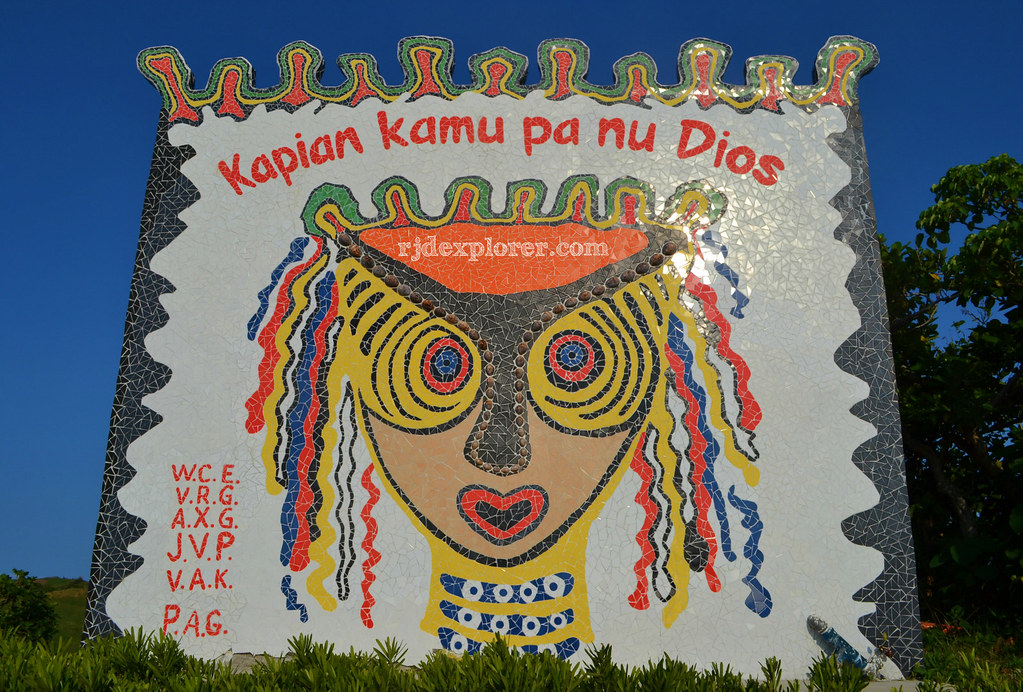 Kapian kamu pa nu Dios
rjdexplorer.com
W.C.E.
V.R.G.
A.X.G.
J.V.P.
V.A.K.
P.A.G.